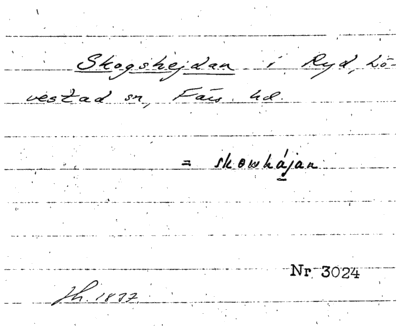 Skogshejdan i Ryd, Lö-
vestad sn, Färs hd.
= skowhájan
Nr 3024
1877